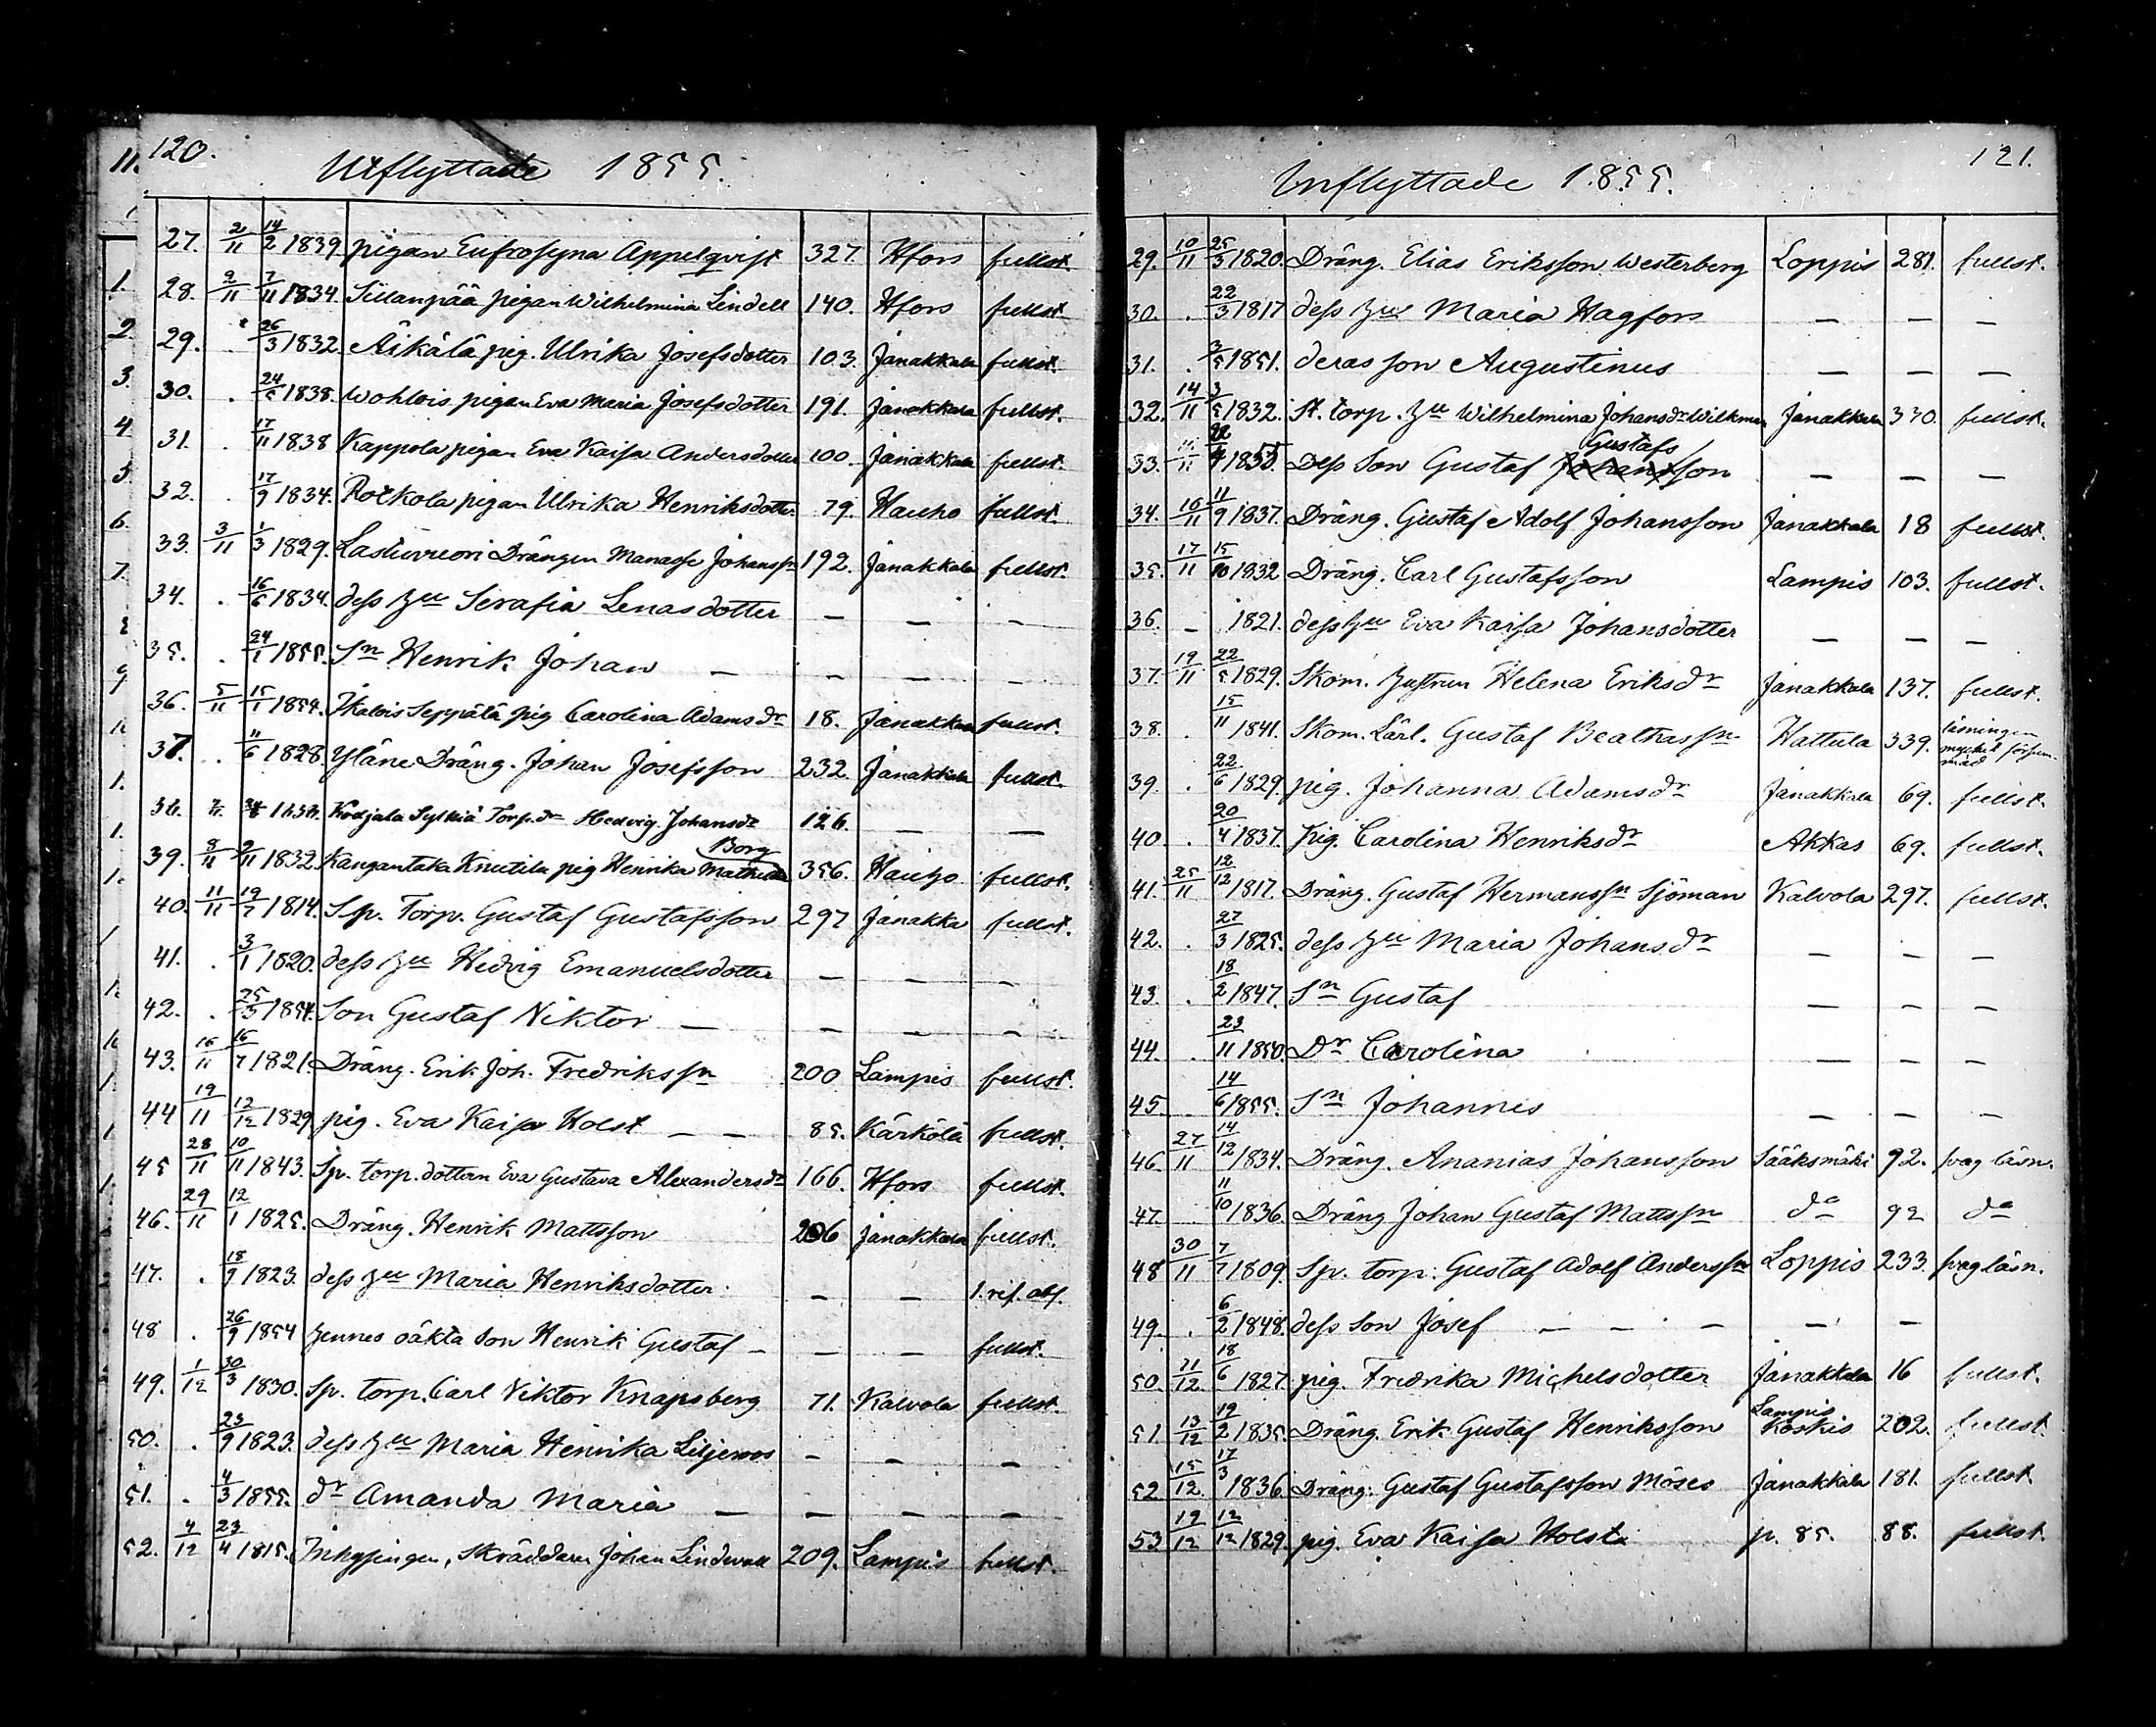 120.
Utflyttade 1855.
27. 2/11 14/2 1839 pigan Eufrosyna Appelqvist 327. Hfors fullst.
28. 2/11 7/11 1834. Sillanpää pigan Wilhelmina Lindell 140. Hfors fullst.
29. 26/3 1832. Äikälä pig. Ulrika Josefsdotter 103. Janakkala fullst.
30. . 24/5 1838. Wohlois pigan Eva Maria Josefsdotter 191. Janakkala fullst.
31. . 17/11 1838 Kappola pigan Eva Kaisa Andersdotter 100. Janakkala fullst.
32. . 17/9 1834. Rotkola pigan Ulrika Henriksdotter 79. Hauho fullst.
33. 3/11 1/3 1829. Drängen Manasse Johansson 192. Janakkala fullst.
34. . 16/6 1834. dess hu Serafia Lenasdotter — — —
35. . 24/1 1855. Sn Henrik Johan — — — —
36. 5/11 15/1 1834. Ikalois Seppälä pig Carolina Adamsdr 18. Janakkala fullst.
37. . 11/6 1828. Yläne Dräng. Johan Josefsson 232. Janakkala fullst.
Sylkiä Torp. dr Hedvig Johansdr 126. — —
39. 8/11 9/11 1832. Kangantaka Knutila pig Henrika Mathilda Borg 356. Hauho fullst.
40. 11/11 19/7 1814. Sp. Torp. Gustaf Gustafsson 297 Janakka fullst.
41. . 3/1 1820. dess hu Hedvig Emanuelsdotter — — —
42. . 25/3 1854. Son Gustaf Viktor — — — —
43. 16/11 16/7 1821. Dräng. Erik Joh. Fredrikssn 200 Lampis fullst.
44 19/11 12/12 1829 pig. Eva Kaisa Holst — — 85. Kärkölä fullst.
45 28/11 10/11 1843. Sp. torp. dottern Eva Gustava Alexandersdr 166. Hfors fullst.
46. 29/11 12/1 1825. Dräng. Henrik Mattsson 206 Janakkala fullst.
47. . 18/9 1823. dess hu Maria Henriksdotter. — — 1. rif. abs.
48 . 26/9 1854 hennes oäkta son Henrik Gustaf — — — fullst.
49. 1/12 30/3 1830. Sp. torp. Carl Viktor Knapsberg 71. Kalvola fullst.
50. . 23/9 1823. dess hu Maria Henrika Liljeroos — — —
51. . 4/3 1855. dr Amanda Maria — — — —
52. 4/12 23/4 1815. Inhysingen, Skräddaren Johan Lindvall 209. Lampis fullst.
121.
Inflyttade 1855.
29. 10/11 25/3 1820. Dräng. Elias Eriksson Westerberg Loppis 281. fullst.
30. . 22/3 1817 dess hu Maria Hagfors — — —
31. . 3/5 1851. deras son Augustinus — — —
32. 14/11 3/5 1832. St. torp. hu Wilhelmina Johansdr Wilkman Janakkala 330. fullst.
33. 1855. Dess Son Gustaf Johansson Gustafs — — —
34. 16/11 11/9 1837. Dräng. Gustaf Adolf Johansson Janakkala 18 fullst.
35. 17/11 15/10 1832 Dräng. Carl Gustafsson Lampis 103. fullst.
36. — 1821. dess hu Eva Kaisa Johansdotter — — —
37. 19/11 22/5 1829. Skom. hustrun Helena Eriksdr Janakkala 137. fullst.
38. . 15/11 1841. Skom. Lärl. Gustaf Beathassn Hattula 339. läsningen mycket försummad
39. . 22/6 1829. pig. Johanna Adamsdr Janakkala 69. fullst.
40. . 20/4 1837. pig. Carolina Henriksdr Akkas 69. fullst.
41. 25/11 12/12 1817. Dräng. Gustaf Hermanssn Sjöman Kalvola 297. fullst.
42. . 27/3 1825. dess hu Maria Johansdr — — —
43. . 18/2 1847. Sn Gustaf — — —
44. . 23/11 1850. Dr Carolina — — —
45 . 14/6 1855. Sn Johannes — — —
46. 27/11 14/12 1834. Dräng. Ananias Johansson Sääksmäki 92. svag läsn.
47. 11/10 1836. Dräng Johan Gustaf Mattssn do 92 do
48 30/11 7/7 1809. Sp. torp. Gustaf Adolf Anderssn Loppis 233. svag läsn.
49. . 6/2 1848. dess son Josef — — — — —
50. 11/12. 18/6 1827. pig. Fredrika Michelsdotter Janakkala 16 fullst.
51. 13/12 19/2 1835. Dräng. Erik Gustaf Henriksson Lampis Koskis 202. fullst.
52. 15/12. 17/3 1836. Dräng. Gustaf Gustafsson Möses Janakkala 181. fullst.
53 19/12 12/12 1829. pig. Eva Kaisa Holst p. 85. 88. fullst.